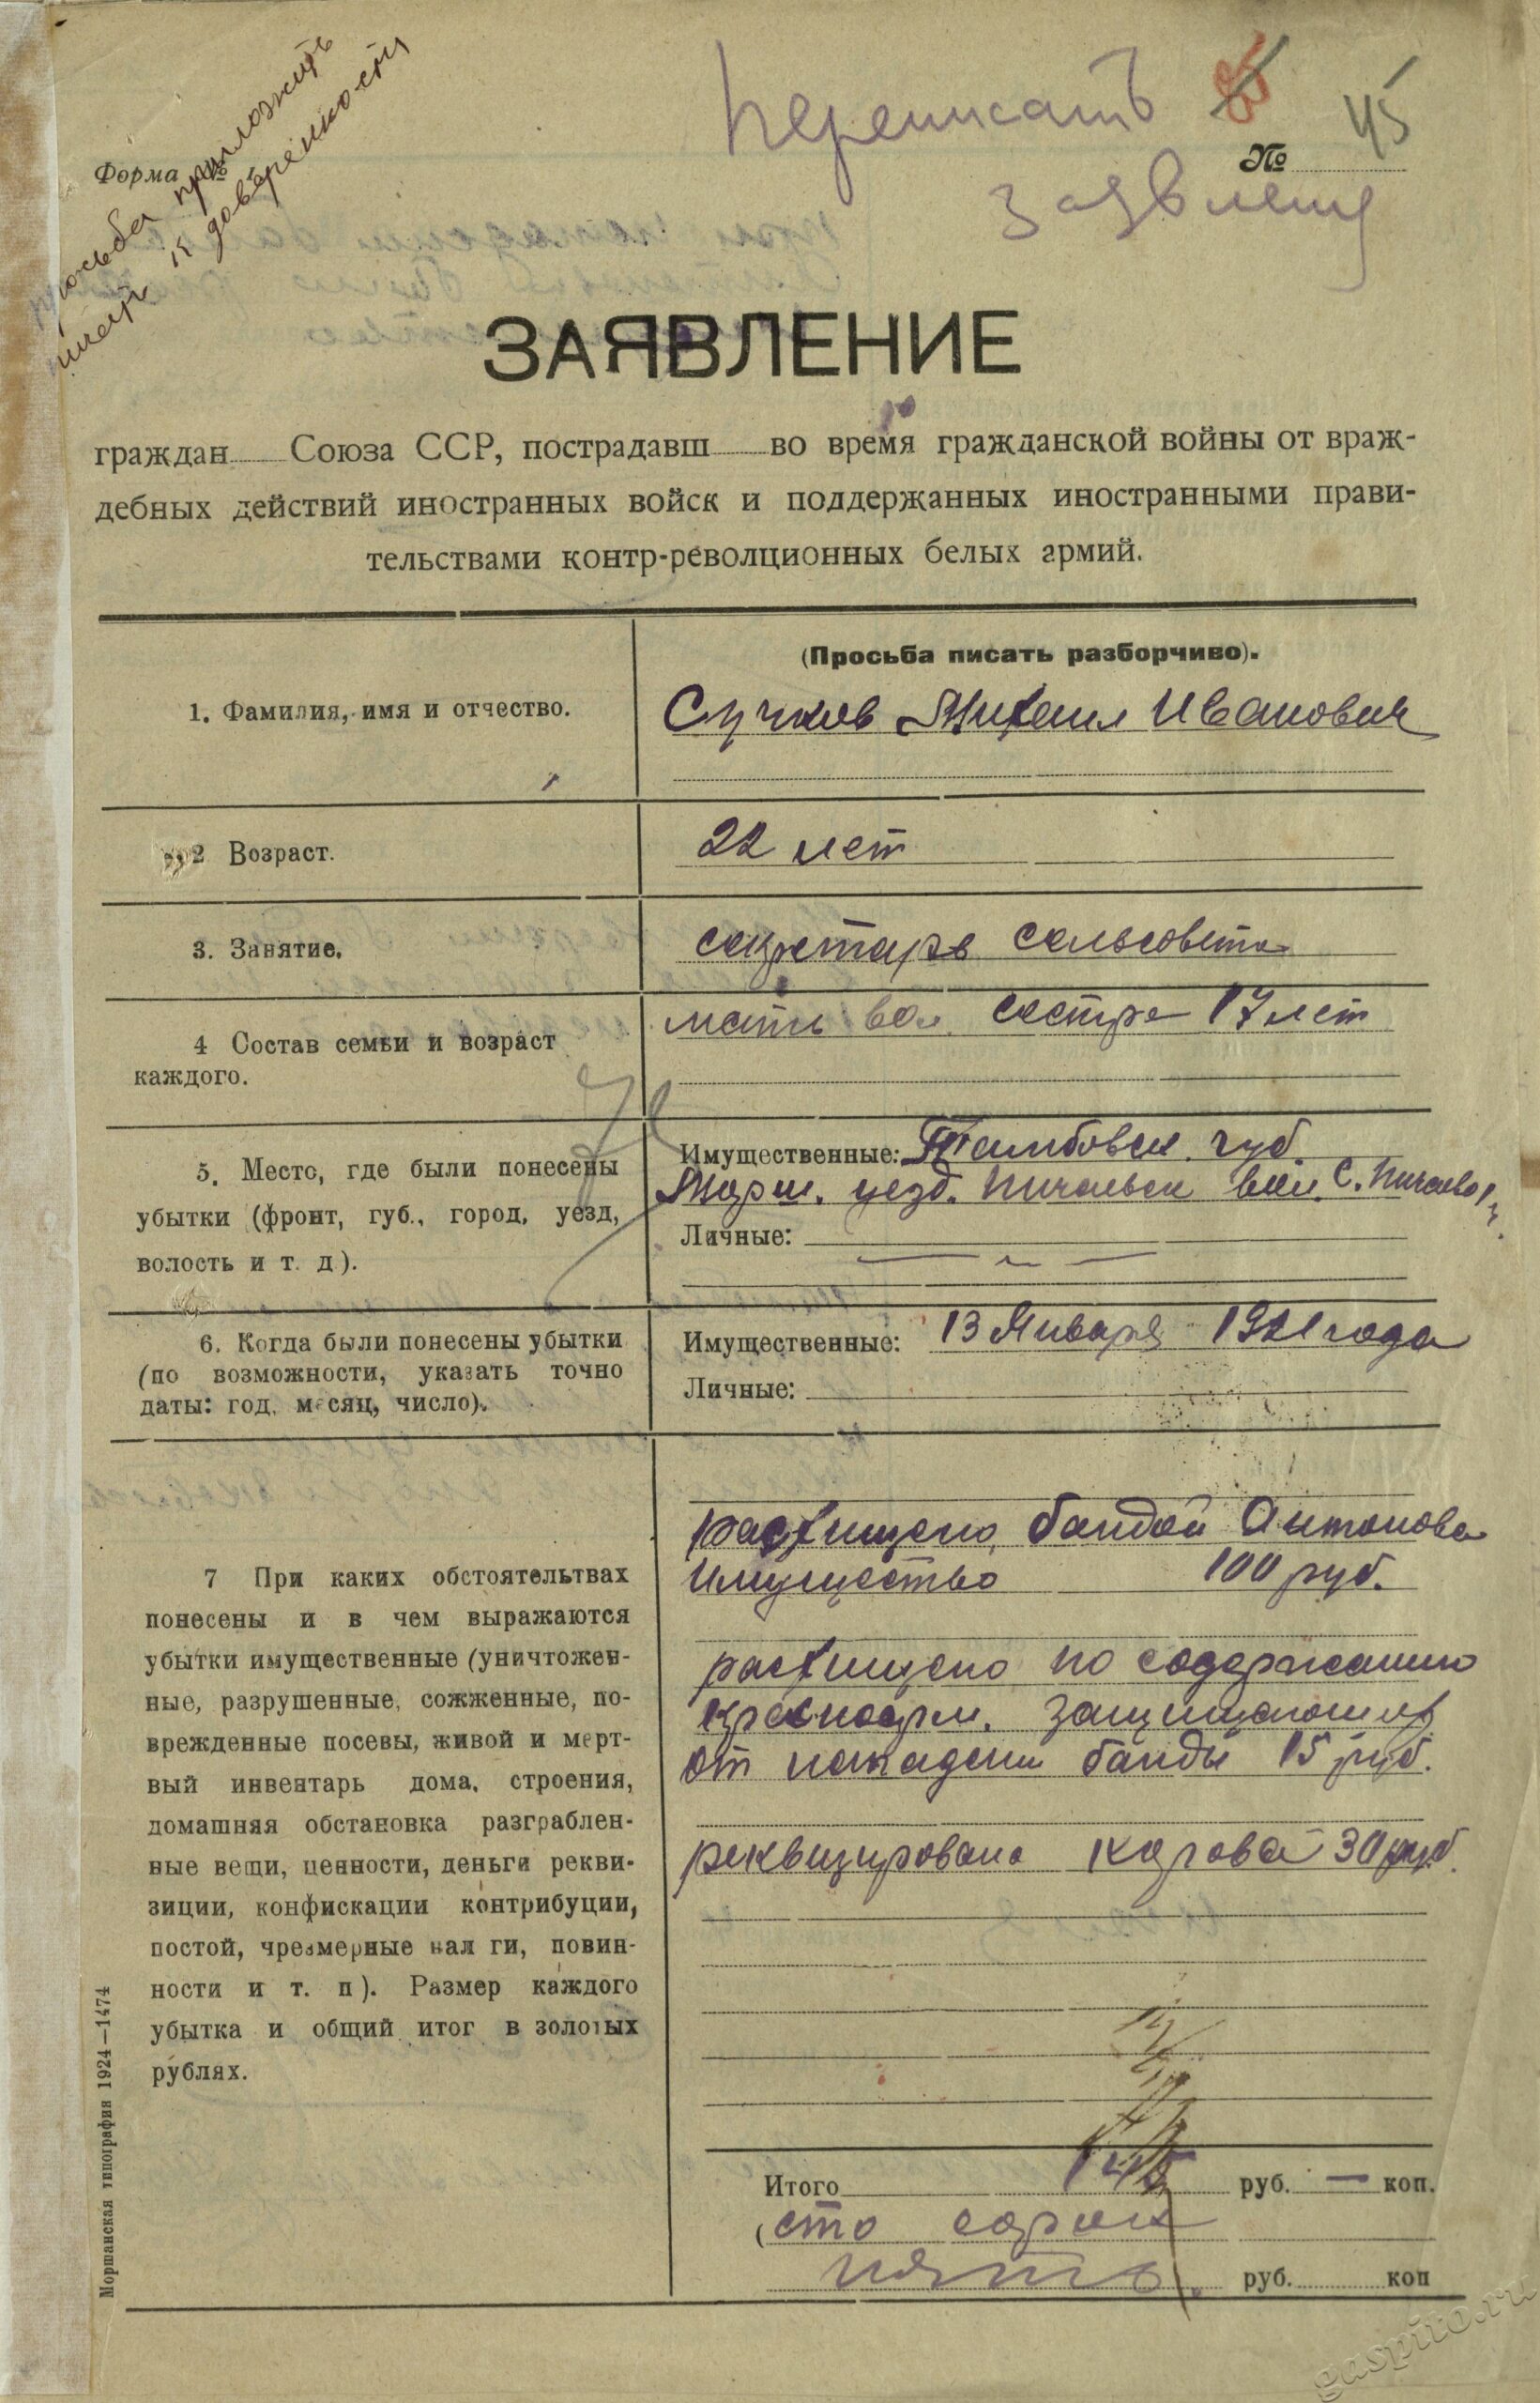 просьба приложить
к доверенности
Форма № 1
переписать
№ 45
ЗАЯВЛЕНИЕ
граждан Союза ССР, пострадавш во время гражданской войны от враж-
дебных действий иностранных войск и поддержанных иностранными прави-
тельствами контр-револционных белых армий.
(Просьба писать разборчиво).
1. Фамилия, имя и отчество.
Сучков Михаил Иванович
2 Возраст.
22 лет
3. Занятие.
секретарь сельсовета
4 Состав семьи и возраст
каждого.
мать 60 л. сестра 17 лет
5. Место, где были понесены
убытки (фронт, губ., город, уезд,
волость и т. д).
Имущественные: Тамбовск. губ.
Морш. уезд. Пичаевск вол. с. Пичаево
Личные:
6. Когда были понесены убытки
(по возможности, указать точно
даты: год, месяц, число).
Имущественные: 13 Января 1921 года
Личные:
7 При каких обстоятельтвах
понесены и в чем выражаются
убытки имущественные (уничтожен-
ные, разрушенные, сожженные, по-
врежденные посевы, живой и мерт-
вый инвентарь дома, строения,
домашняя обстановка разграблен-
ные вещи, ценности, деньги рекви-
зиции, конфискации контрибуции,
постой, чрезмерные нал ги, повин-
ности и т. п). Размер каждого
убытка и общий итог в золотых
рублях.
расхищено бандой Антонова
имущество 100 руб.
расхищено по содержанию
красноарм. защищающих
от нападени банды 15 руб.
реквизировано корова 30 руб.
Итого 145 руб. — коп.
(сто сорок
пять). руб. коп
Моршанская типография 1924—1474
gaspito.ru